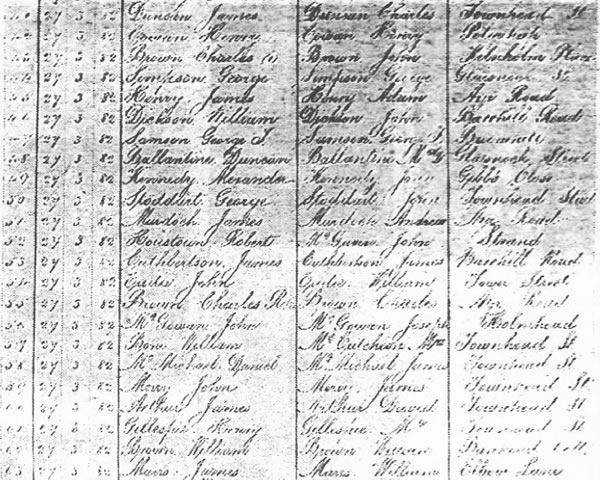 27 3 82 Duncan James Duncan Charles Townhead St
42 27 3 82 Cowan Henry Cowan Henry
27 3 82 Brown Charles (1) Brown John Helenholm
27 3 82 Simpson George Simpson George Glaisnock St
45 27 3 82 Henry James Henry Adam Ayr Road
46 27 3 82 Dickson William John Barrhill Road
47 27 3 82 Samson George T. Samson
48 27 3 82 Ballantine Duncan Ballantine Glaisnock Street
49 27 3 82 Kennedy Alexander Kennedy John Gibbs Close
50 27 3 82 Stoddart George Stoddart John Townhead Street
51 27 3 82 Murdoch James Murdoch Andrew Ayr Road
52 27 3 82 Robert John Strand
53 27 3 82 Cuthbertson James Cuthbertson James Barrhill Road
54 27 3 82 John William Tower Street
55 27 3 82 Brown Charles Brown Charles Ayr Road
56 27 3 82 McGowan John McGowan Joseph Holmhead
57 27 3 82 William McCutcheon Townhead St
58 27 3 82 McMichael Daniel McMichael James Townhead St
59 27 3 82 John James Townhead St
60 27 3 82 Arthur James Arthur David Townhead St
61 27 3 82 Gillespie Henry Gillespie Townhead St
62 27 3 82 Brown William Brown William
63 27 3 82 James William Elbow Lane